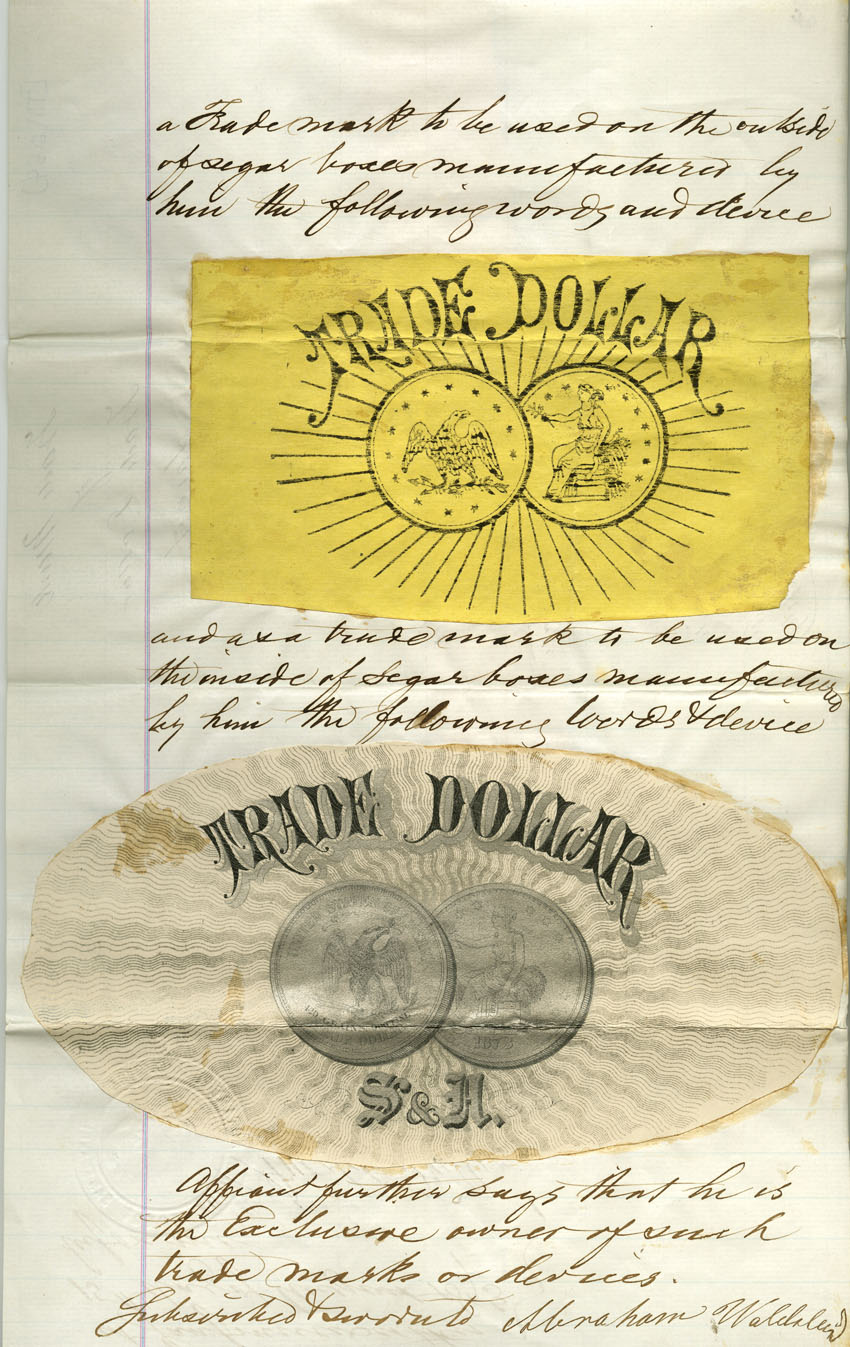 a Trade mark to be used on the outside
of segar boxes manufactured by
him the following words and device
TRADE DOLLAR
and as a trade mark to be used on
the inside of segar boxes manufactured
by him the following words & device
TRADE DOLLAR
1873
S & A.
Affiant further says that he is
the Exclusive owner of such
trade marks or devices.
Subscribed & sworn to Abraham